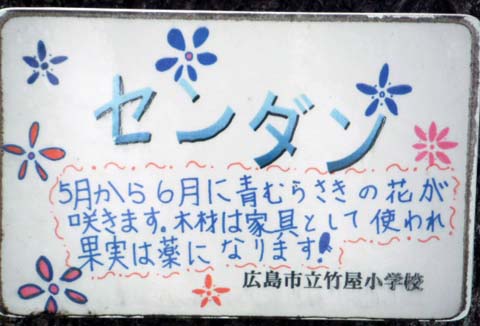 センダン
5月から6月に青むらさきの花が
咲きます。木材は家具として使われ
果実は薬になります!
広島市立竹屋小学校